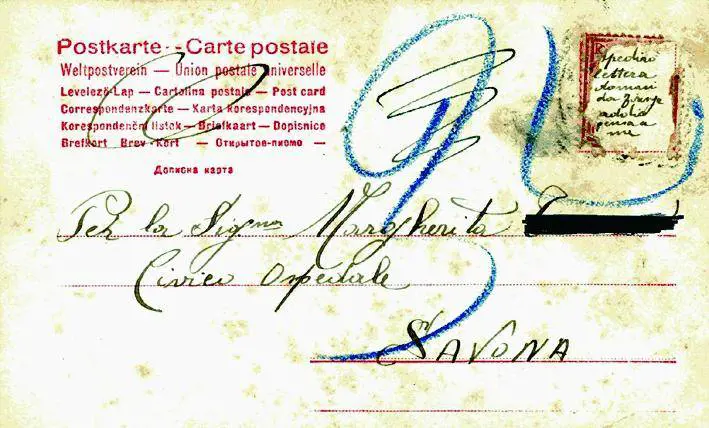 Postkarte - Carte postale
Weltpostverein — Union postale universelle
Levelező-Lap — Cartolina postale — Post card
Correspondenzkarte — Karta korespondencyjna
Korespondenční listek — Briefkaart — Dopisnice
Brefkort Brev-Kort — Открытое-письмо —
Дописна карта
spedirò
lettera
doman
da
a
me
Per la Sigma Margherita
Civico Ospedale
SAVONA